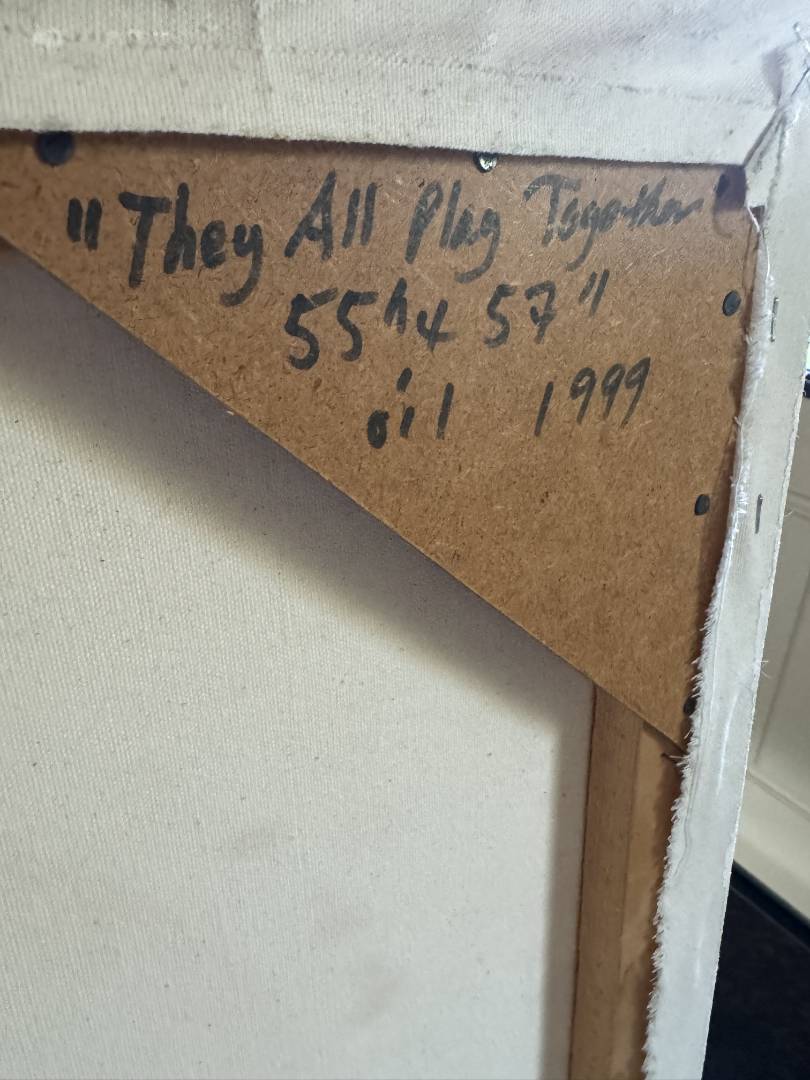 "They All Play Together
55"x 57"
oil 1999